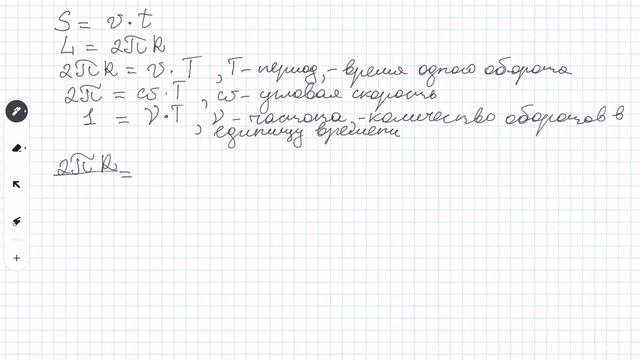 S = v · t
L = 2πR
2πR = v · T , T - период, - время одного оборота
2π = ω · T , ω - угловая скорость
1 = ν · T , ν - частота, - количество оборотов в
, единицу времени
2πR =